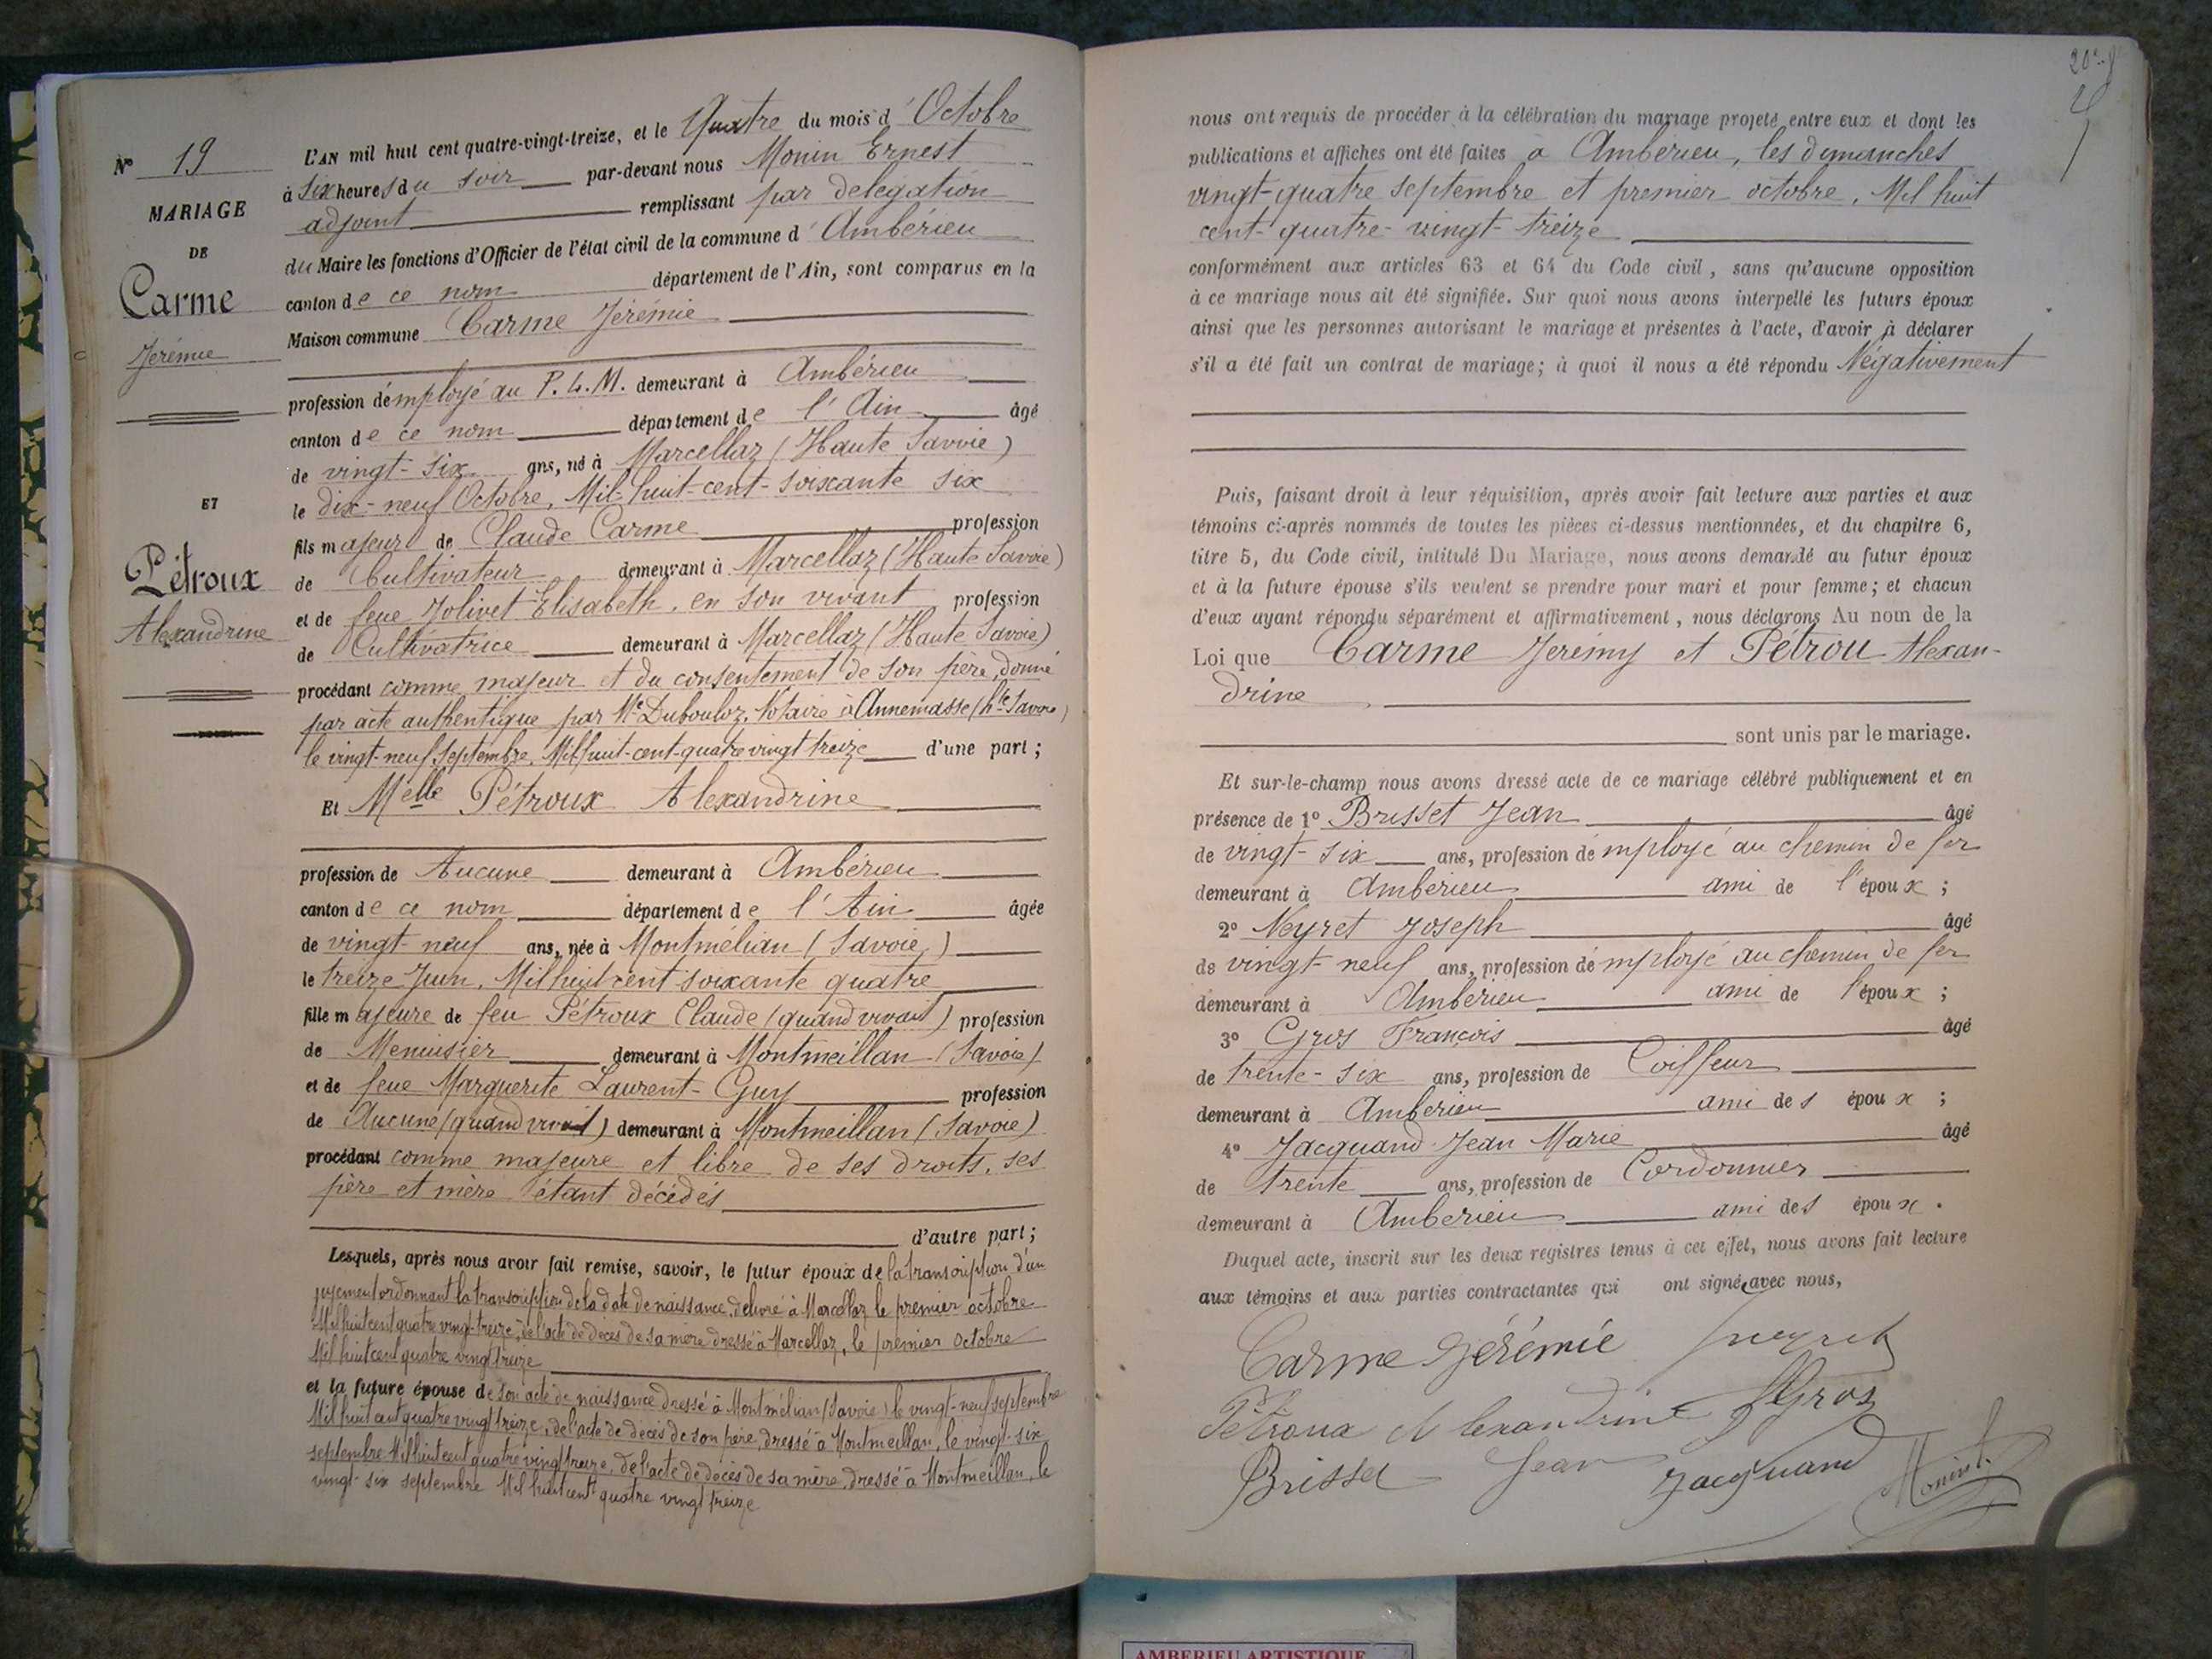 N° 19
MARIAGE
DE
Carme
Jérémie
ET
Pétroux
Alexandrine
L'AN mil huit cent quatre-vingt-treize, et le Quatre du mois d'Octobre
à six heures du soir par-devant nous Monin Ernest
adjoint remplissant par délégation
du Maire les fonctions d'Officier de l'état civil de la commune d'Ambérieu
canton de ce nom département de l'Ain, sont comparus en la
Maison commune Carme Jérémie
profession d'employé au P.L.M. demeurant à Ambérieu
canton de ce nom département de l'Ain âgé
de vingt-six ans, né à Marcellaz (Haute Savoie)
le dix-neuf Octobre, Mil-huit-cent-soixante six
fils majeur de Claude Carme profession
de Cultivateur demeurant à Marcellaz (Haute Savoie)
et de feue Jolivet Elisabeth, en son vivant profession
de Cultivatrice demeurant à Marcellaz (Haute Savoie)
procédant comme majeur et du consentement de son père, donné
par acte authentique par Me Dubouloz, Notaire à Annemasse (hte Savoie)
le vingt-neuf Septembre, Mil huit-cent-quatre vingt treize d'une part ;
Et Melle Pétroux Alexandrine
profession de Aucune demeurant à Ambérieu
canton de ce nom département de l'Ain âgée
de vingt neuf ans, née à Montmélian (Savoie)
le treize Juin, Mil huit cent soixante quatre
fille majeure de feu Pétroux Claude (quand vivait) profession
de Menuisier demeurant à Montmeillan (Savoie)
et de feue Marguerite Laurent-Guy profession
de Aucune (quand vivait) demeurant à Montmeillan (Savoie)
procédant comme majeure et libre de ses droits, ses
père et mère étant décédés
d'autre part ;
Lesquels, après nous avoir fait remise, savoir, le futur époux de la transcription d'un
jugement ordonnant la transcription de la date de naissance, délivré à Marcellaz le premier octobre
Mil huit cent quatre vingt-treize, de l'acte de décès de sa mère dressé à Marcellaz, le premier octobre
Mil huit cent quatre vingt treize
et la future épouse de son acte de naissance dressé à Montmélian (Savoie) le vingt-neuf septembre
Mil huit cent quatre vingt treize, de l'acte de décès de son père, dressé à Montmeillan, le vingt-six
septembre Mil huit cent quatre vingt treize, de l'acte de décès de sa mère, dressé à Montmeillan, le
vingt-six septembre Mil huit cent quatre vingt treize
nous ont requis de procéder à la célébration du mariage projeté entre eux et dont les
publications et affiches ont été faites à Ambérieu, les dimanches
vingt-quatre septembre et premier octobre, Mil huit
cent-quatre-vingt-treize
conformément aux articles 63 et 64 du Code civil, sans qu'aucune opposition
à ce mariage nous ait été signifiée. Sur quoi nous avons interpellé les futurs époux
ainsi que les personnes autorisant le mariage et présentes à l'acte, d'avoir à déclarer
s'il a été fait un contrat de mariage ; à quoi il nous a été répondu Négativement
Puis, faisant droit à leur réquisition, après avoir fait lecture aux parties et aux
témoins ci-après nommés de toutes les pièces ci-dessus mentionnées, et du chapitre 6,
titre 5, du Code civil, intitulé Du Mariage, nous avons demandé au futur époux
et à la future épouse s'ils veulent se prendre pour mari et pour femme ; et chacun
d'eux ayant répondu séparément et affirmativement, nous déclarons Au nom de la
Loi que Carme Jérémy et Pétrou Alexan-
drine
sont unis par le mariage.
Et sur-le-champ nous avons dressé acte de ce mariage célébré publiquement et en
présence de 1° Brisset Jean âgé
de vingt-six ans, profession d'employé au chemin de fer
demeurant à Ambérieu ami de l'époux ;
2° Neyret Joseph âgé
de vingt-neuf ans, profession d'employé au chemin de fer
demeurant à Ambérieu ami de l'époux ;
3° Gros François âgé
de trente-six ans, profession de Coiffeur
demeurant à Ambérieu ami des époux ;
4° Jacquand Jean Marie âgé
de trente ans, profession de Cordonnier
demeurant à Ambérieu ami des époux.
Duquel acte, inscrit sur les deux registres tenus à cet effet, nous avons fait lecture
aux témoins et aux parties contractantes qui ont signé avec nous,
Carme Jérémie Neyret
Pétroux Alexandrine Gros
Brisset Jean Jacquand Monin E.
AMBERIEU ARTISTIQUE